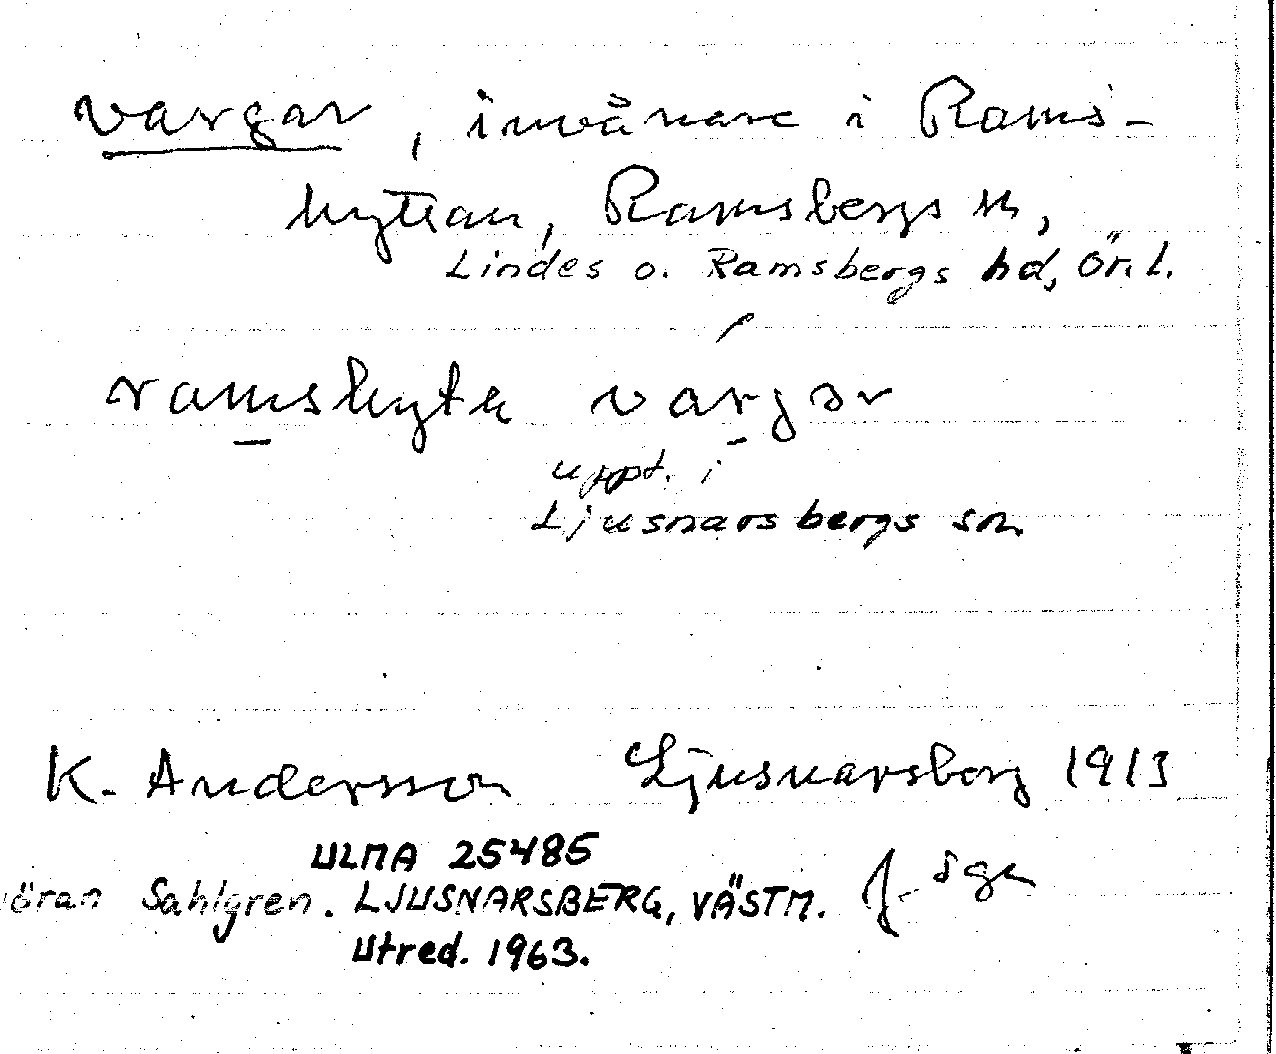 vargar, invånare i Rams-
hyttan, Ramsbergs sn,
Lindes o. Ramsbergs hd, Ör. l.
ramshyte vargar
uppt. i
Ljusnarsbergs sn.
K. Andersson Ljusnarsberg 1913
ULMA 25485
öran Sahlgren. LJUSNARSBERG, VÄSTM.
Utred. 1963.